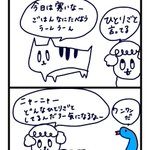 今日は寒いなー
ごはんなにたべよう
うーんうーん
ひとりごと
言ってる
ニャーニャー
どんなひとりごと
してるんだろー気になるなー
ワンワン
だ